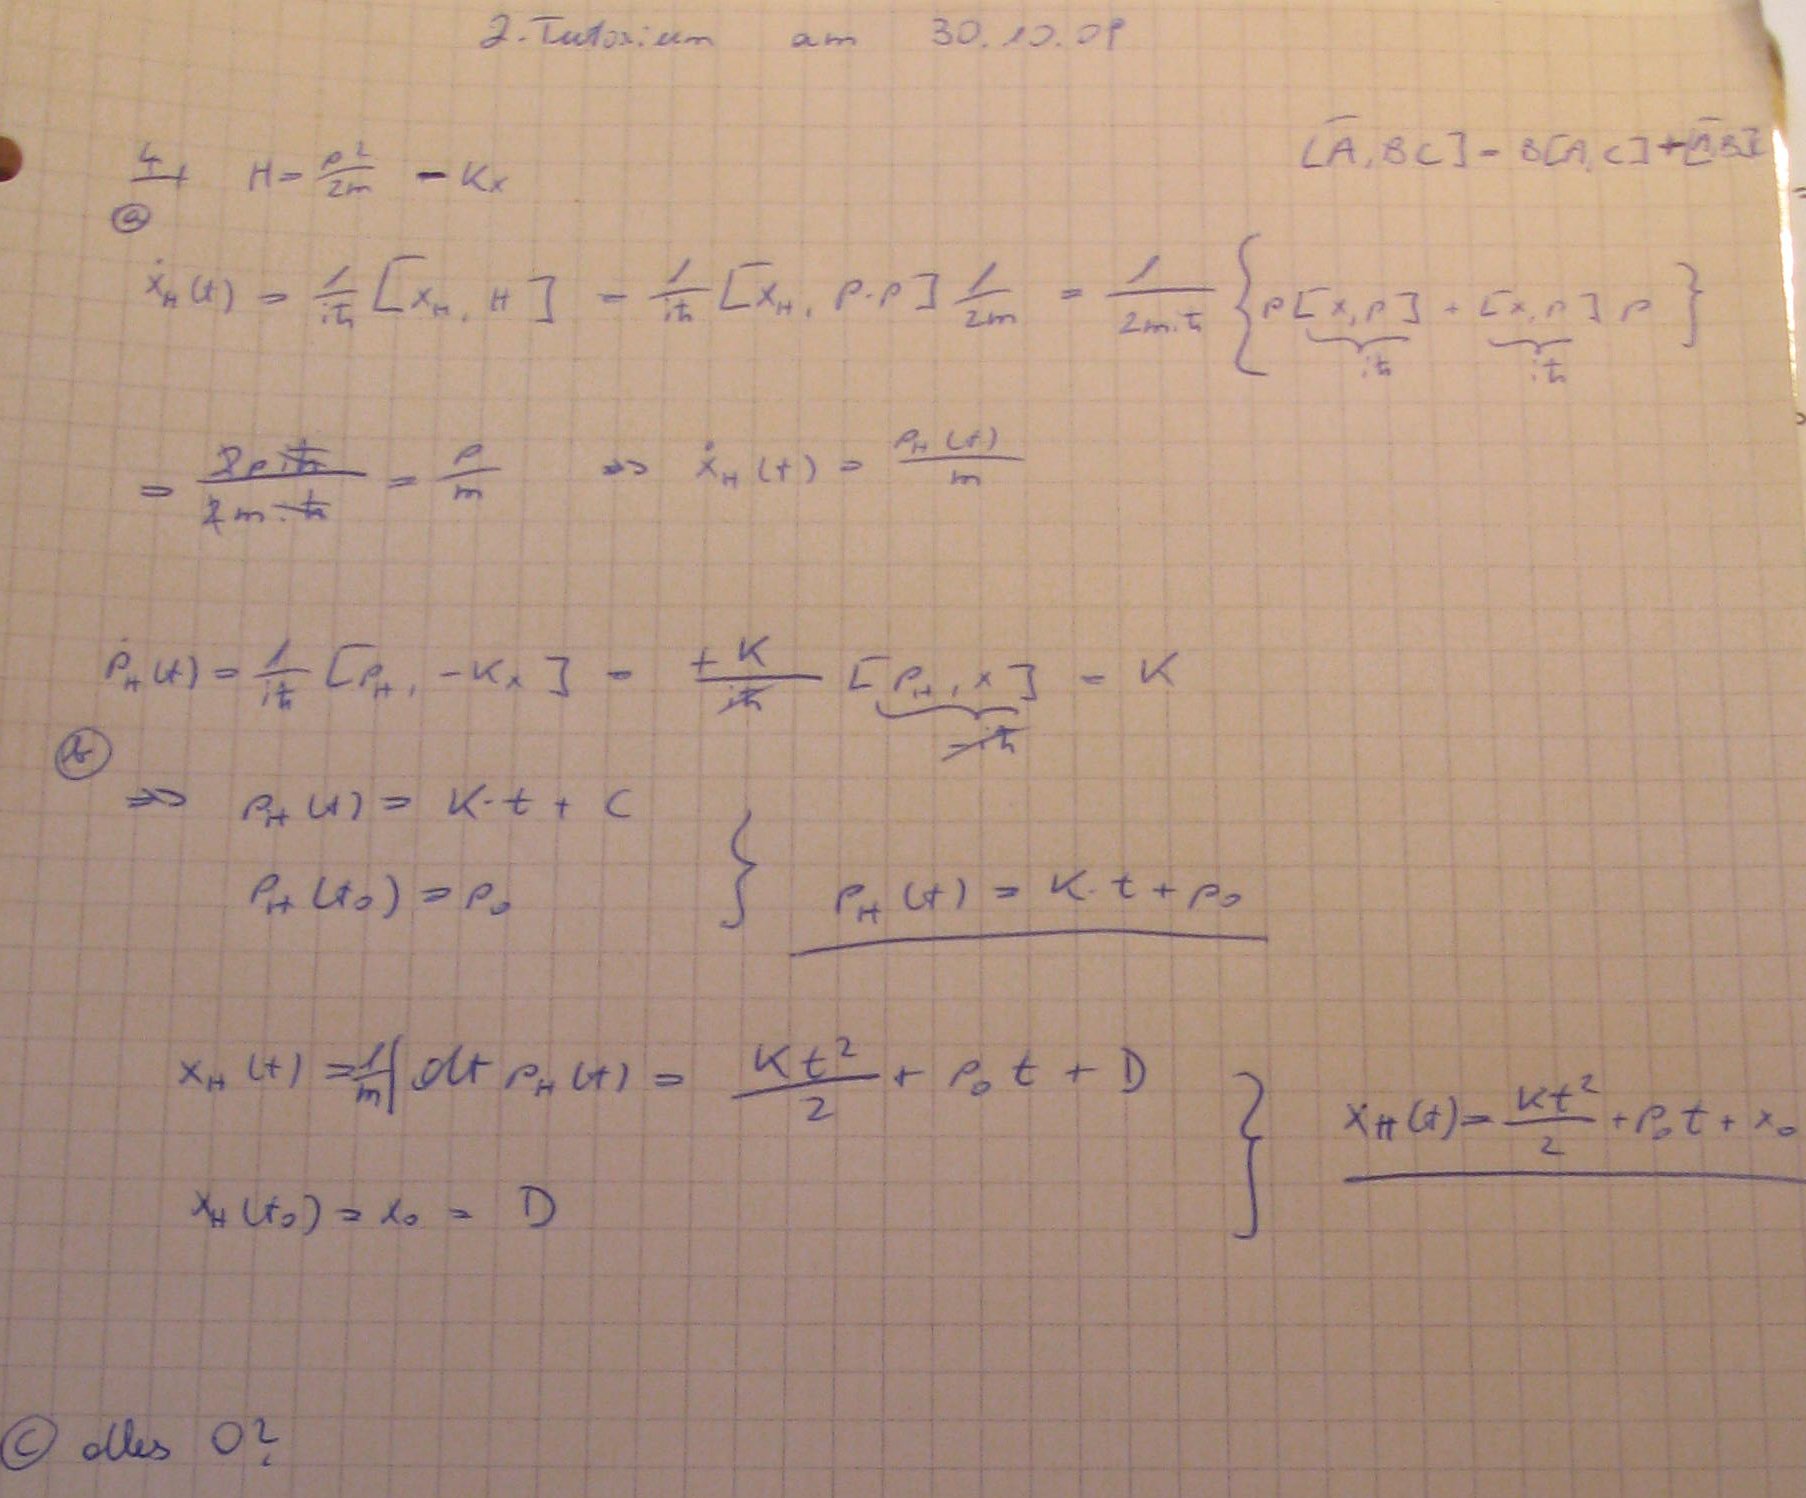 2. Tutorium am 30.10.09
[A, BC] = B[A, C] + [A, B]C
4 H = p²/2m - Kx
(a)
ẋ_H(t) = 1/iħ [x_H, H] = 1/iħ [x_H, p·p] 1/2m = 1/2miħ { p[x,p] + [x,p] p }
iħ iħ
= 2piħ/2miħ = p/m => ẋ_H(t) = p_H(t)/m
ṗ_H(t) = 1/iħ [p_H, -Kx] = +K/iħ [p_H, x] = K
-iħ
(b)
=> p_H(t) = K·t + C
p_H(t₀) = p₀ } p_H(t) = K·t + p₀
x_H(t) = 1/m ∫ dt p_H(t) = Kt²/2 + p₀t + D
} x_H(t) = Kt²/2 + p₀t + x₀
x_H(t₀) = x₀ = D
(c) alles 0?